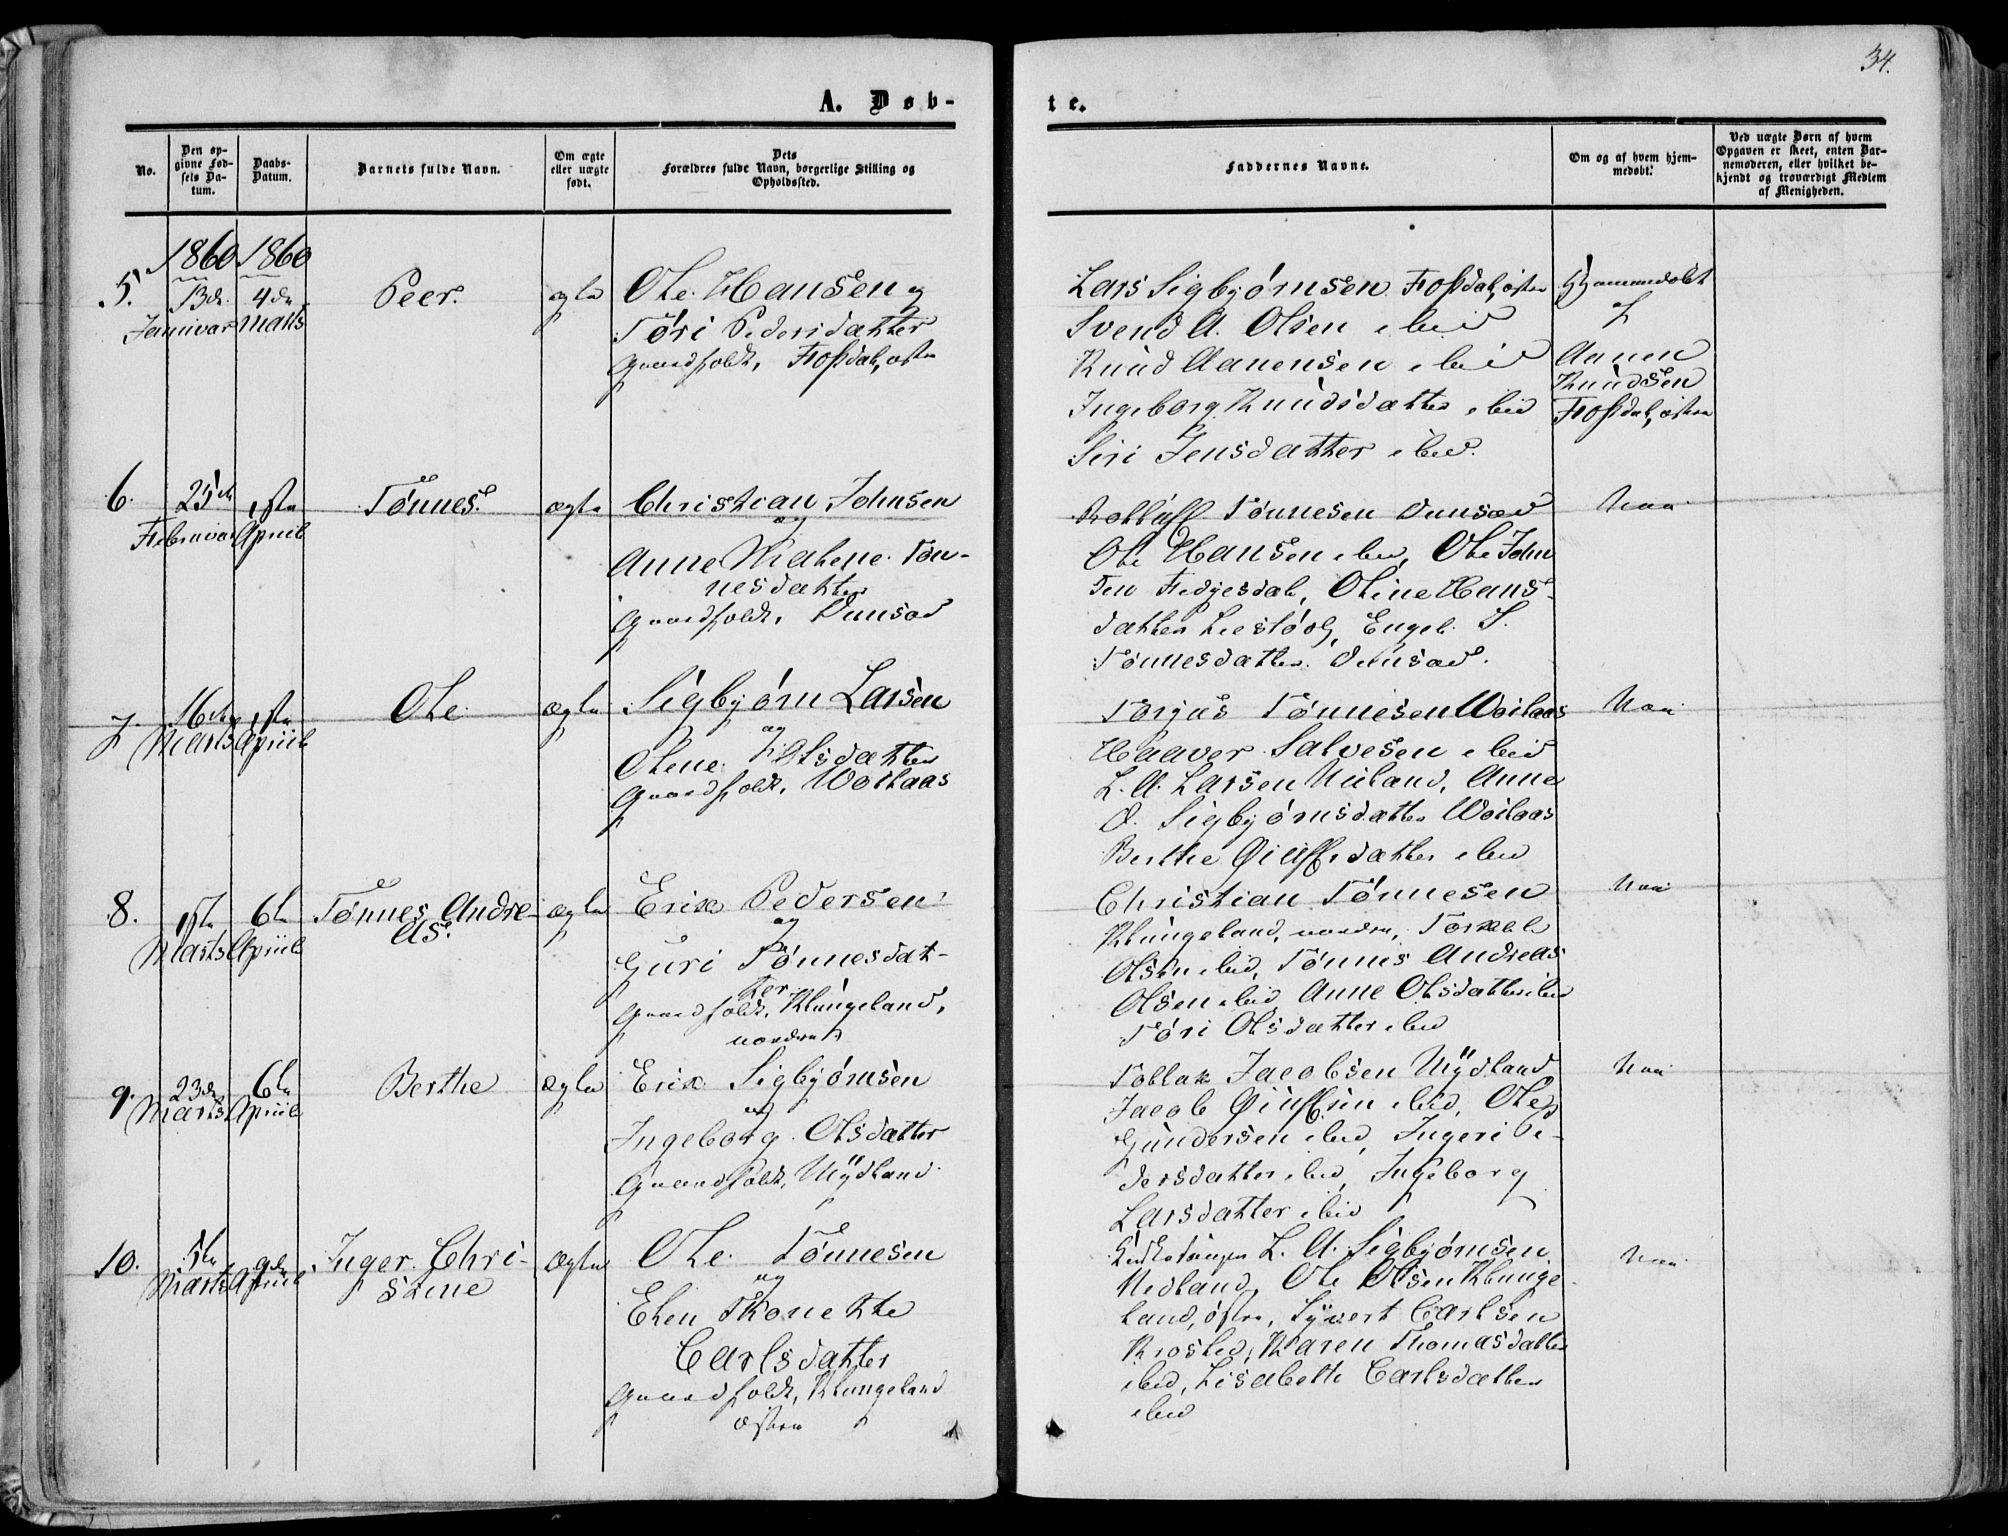 34.
A. Døb-
te.
No.
Den op-
givne Fød-
sels Da-
tum.
Daabs-
Datum.
Barnets fulde Navn.
Om ægte
eller uægte
født.
Dets
Forældres fulde Navn, borgerlige Stilling og
Opholdssted.
Faddernes Navne.
Om og af hvem hjem-
medøbt.
Ved uægte Børn af hvem
Opgaven er skeet, enten Bar-
nemoderen, eller hvilket be-
kjendt og troværdigt Medlem
af Menigheden.
1860 1860
5.
13de
Januvar
4de
Marts
Peer.
ægte
Ole Hansen og
Tøri Pedersdatter
Gaardfolk, Floßdal, østre
Lars Sigbjørnsen Floßdal, østre
Svend A. Olsen ibid
Knud Aanensen ibid
Ingeborg Knudsdatter ibid
Siri Jensdatter ibid.
Hjemmedøbt
af
Aanen
Knudsen
Floßdal, østre
6.
25de
Februvar
1ste
April
Tønnes.
ægte
Christian Johnsen
og
Anne Malene Tøn-
nesdatter
Gaardfolk, Dunsæd
Rolluff Tønnesen Dunsæd
Ole Hansen ibid, Ole John
sen Fedjesdal, Oline Hans-
datter Liestøol, Engel. S.
Tønnesdatter Dunsæd.
Nei
7.
16de
Marts
1ste
April
Ole
ægte
Sigbjørn Larsen
og
Olene Olsdatter
Gaardfolk, Woilaas
Torjus Tønnesen Woilaas
Haaver Salvesen ibid
L. A. Larsen Midland, Anne
O. Sigbjørnsdatter Woilaas
Berthe Øiulfsdatter ibid
Nei
8.
1ste
Marts
6te
April
Tønnes Andre-
as.
ægte
Erik Pedersen
og
Guri Tønnesdat-
ter
Gaardfolk, Klungeland,
nordre
Christian Tønnesen
Klungeland, nordre, Torkel
Olsen ibid, Tønnes Andreas
Olsen ibid Anne Olsdatter ibid
Tøri Olsdatter ibid
Nei
9.
23de
Marts
6te
April
Berthe
ægte
Erik Sigbjørnsen
og
Ingeborg Olsdatter
Gaardfolk, Mydland
Tollak Jacobsen Mydland
Jacob Øiulfsen ibid, Ole
Gundersen ibid, Ingeri Pe-
dersdatter ibid, Ingeborg
Larsdatter ibid
Nei
10.
5te
Marts
9de
April
Inger Chri-
stine
ægte
Ole Tønnesen
og
Elen Thonette
Carlsdatter
Gaardfolk, Klungeland
østre
Kirkesanger L. A. Sigbjørnsen
Midland, Ole Olsen Klunge-
land, østre, Syvert Carlsen
Krosled, Karen Thomasdatter
ibid, Lisabeth Carlsdatter
ibid
Nei